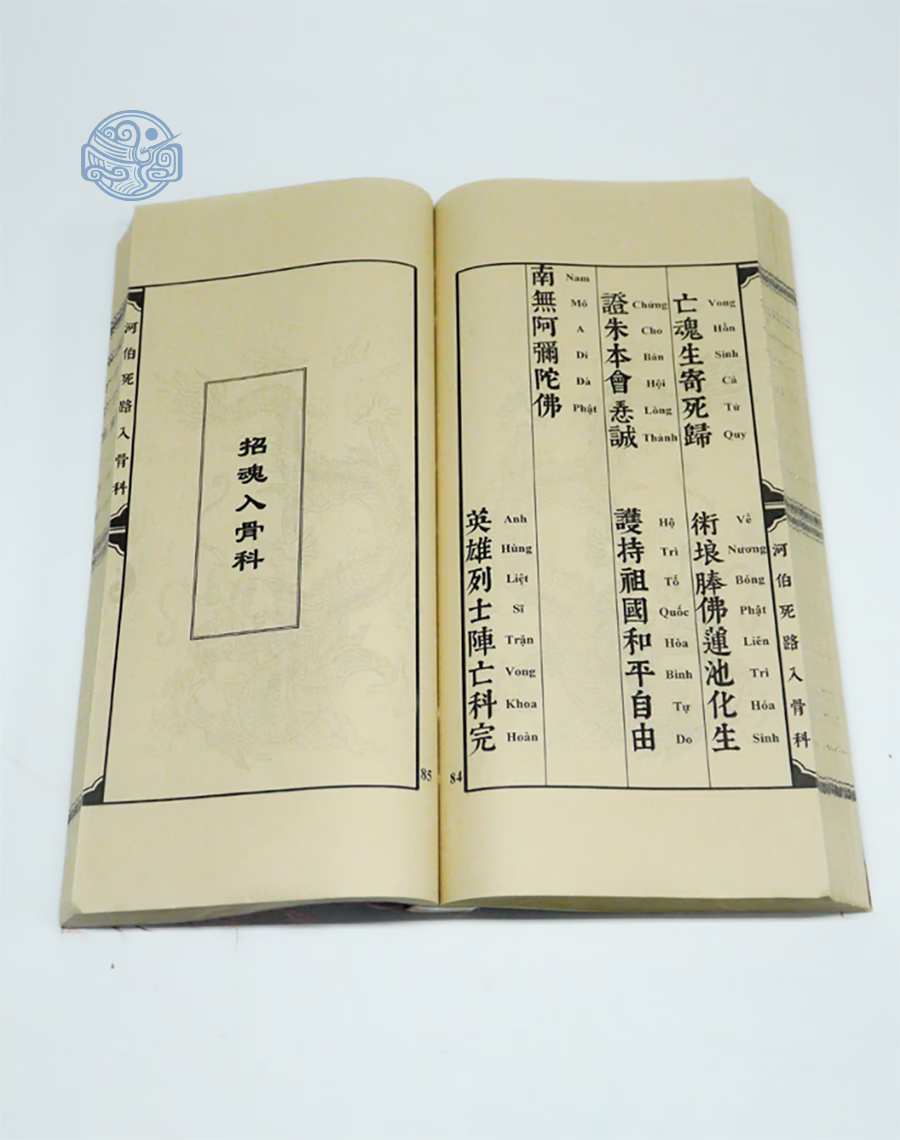 河伯死路入骨科
亡魂生寄死歸
Vong Hồn Sinh Cá Tử Quy
術埌佛蓮池化生
Về Nương Bóng Phật Liên Trì Hóa Sinh
證朱本會𢚸誠
Chứng Cho Bản Hội Lòng Thành
護持祖國和平自由
Hộ Trì Tổ Quốc Hòa Bình Tự Do
南無阿彌陀佛
Nam Mô A Di Đà Phật
英雄列士陣亡科完
Anh Hùng Liệt Sĩ Trận Vong Khoa Hoàn
84
招魂入骨科
85
河伯死路入骨科